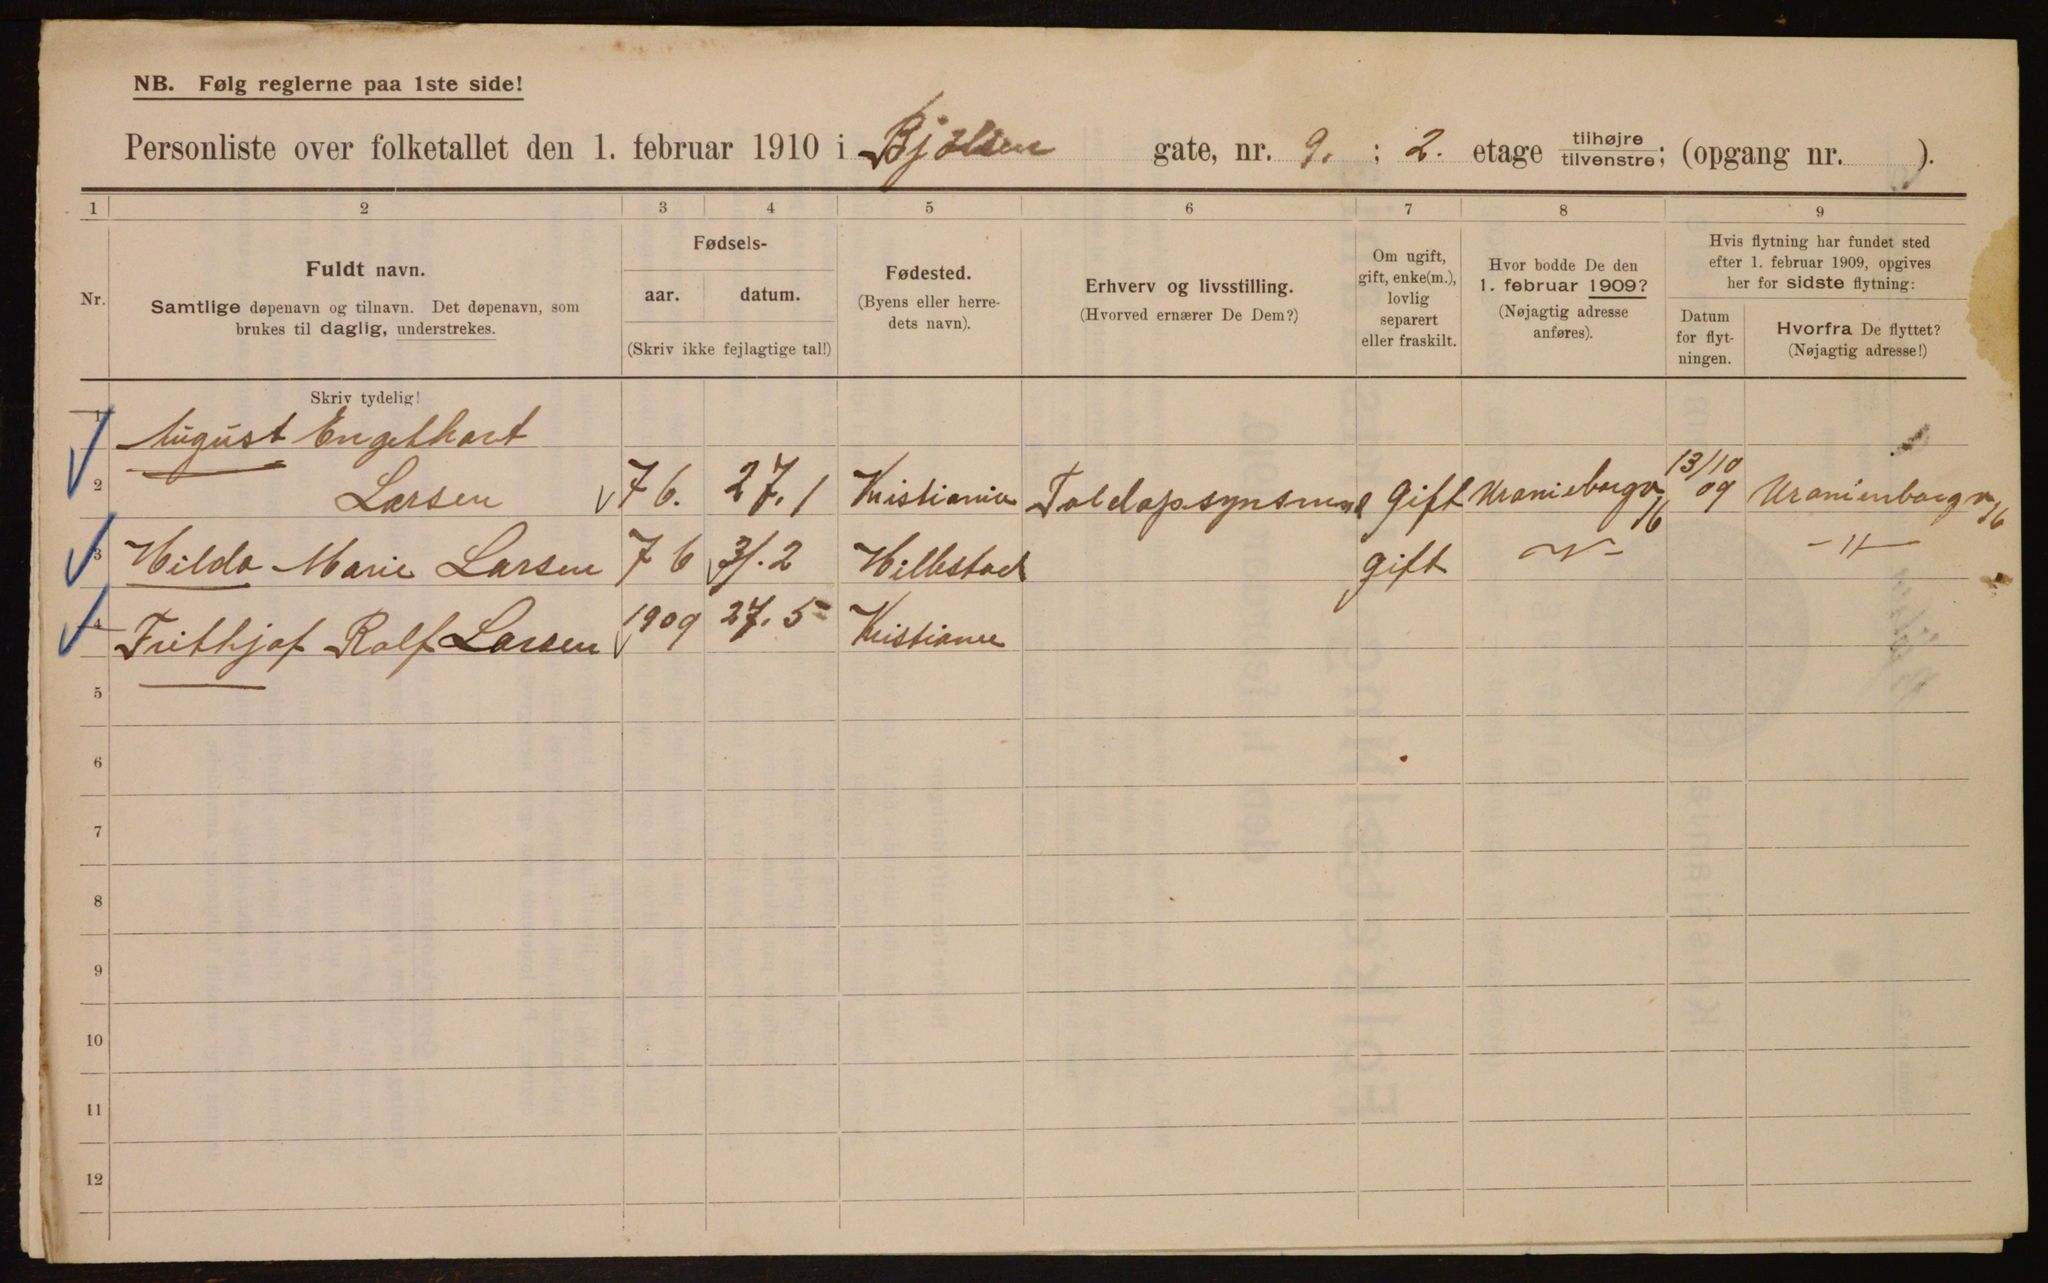 NB. Følg reglerne paa 1ste side!
Personliste over folketallet den 1. februar 1910 i Bjølsen gate, nr. 9. ; 2. etage tilhøjre/tilvenstre; (opgang nr. ).
1 2 3 4 5 6 7 8 9
Nr.
Fuldt navn.
Samtlige døpenavn og tilnavn. Det døpenavn, som
brukes til daglig, understrekes.
Fødsels-
aar. datum.
(Skriv ikke fejlagtige tal!)
Fødested.
(Byens eller herre-
dets navn).
Erhverv og livsstilling.
(Hvorved ernærer De Dem?)
Om ugift,
gift, enke(m.),
lovlig
separert
eller fraskilt.
Hvor bodde De den
1. februar 1909?
(Nøjagtig adresse
anføres).
Hvis flytning har fundet sted
efter 1. februar 1909, opgives
her for sidste flytning:
Datum
for flyt-
ningen.
Hvorfra De flyttet?
(Nøjagtig adresse!)
Skriv tydelig!
1 August Engelhart
2 Larsen 76. 27.1 Kristiania Toldopsynsmand Gift Uranieborgv 16 13/10 09 Uranienborgv 16
3 Hilda Marie Larsen 76 3/.2 gift -〃-
4 Frithjof Rolf Larsen 1909 27.5 Kristiania
5
6
7
8
9
10
11
12